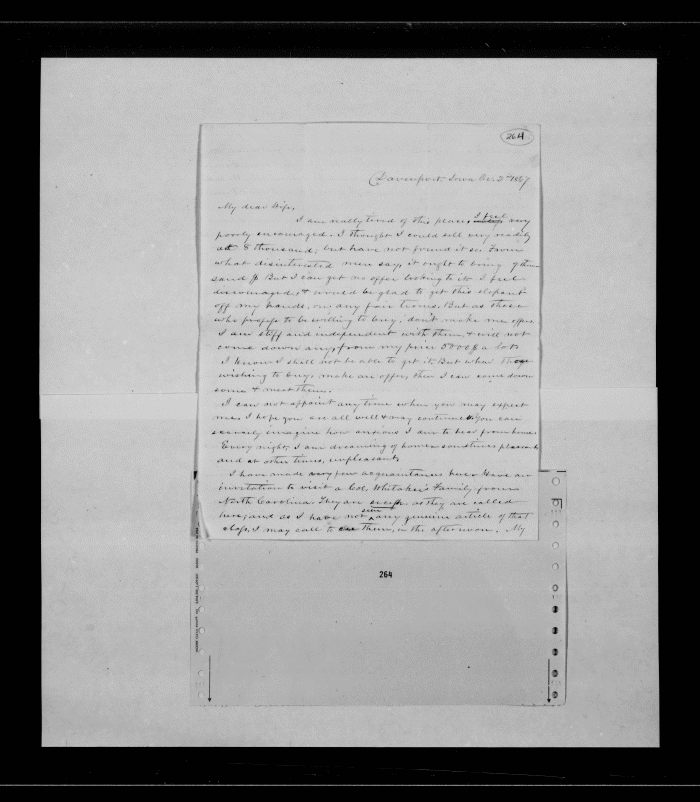 264
Davenport, Iowa Dec. 2nd 1867
My dear Wife,
I am really tired of this place, I feel very
poorly encouraged. I thought I could sell very readily
at 8 thousand; but have not found it so. From
what disinterested men say, it ought to bring 9 thou-
sand $ But I can get no offer looking to it. I feel
discouraged, & would be glad to get this elephant
off my hands, on any fair terms. But as those
who profess to be willing to buy, don't make me offers
I am stiff and independent with them, & will not
come down any, from my price 5000$ a lot.
I know I shall not be able to get it. But when those
wishing to buy, make an offer, then I can come down
some & meet them.
I can not appoint any time when you may expect
me. I hope you are all well & may continue so. You can
scarcely imagine how anxious I am to hear from home.
Every night, I am dreaming of home, sometimes pleasant,
and at other times, unpleasant.
I have made very few acquaintances here. Have an
invitation to visit a Col. Whitaker's Family, from
North Carolina. They are secesh, as they are called
here; and as I have not seen any genuine article of that
class, I may call to see them, in the afternoon. My
264